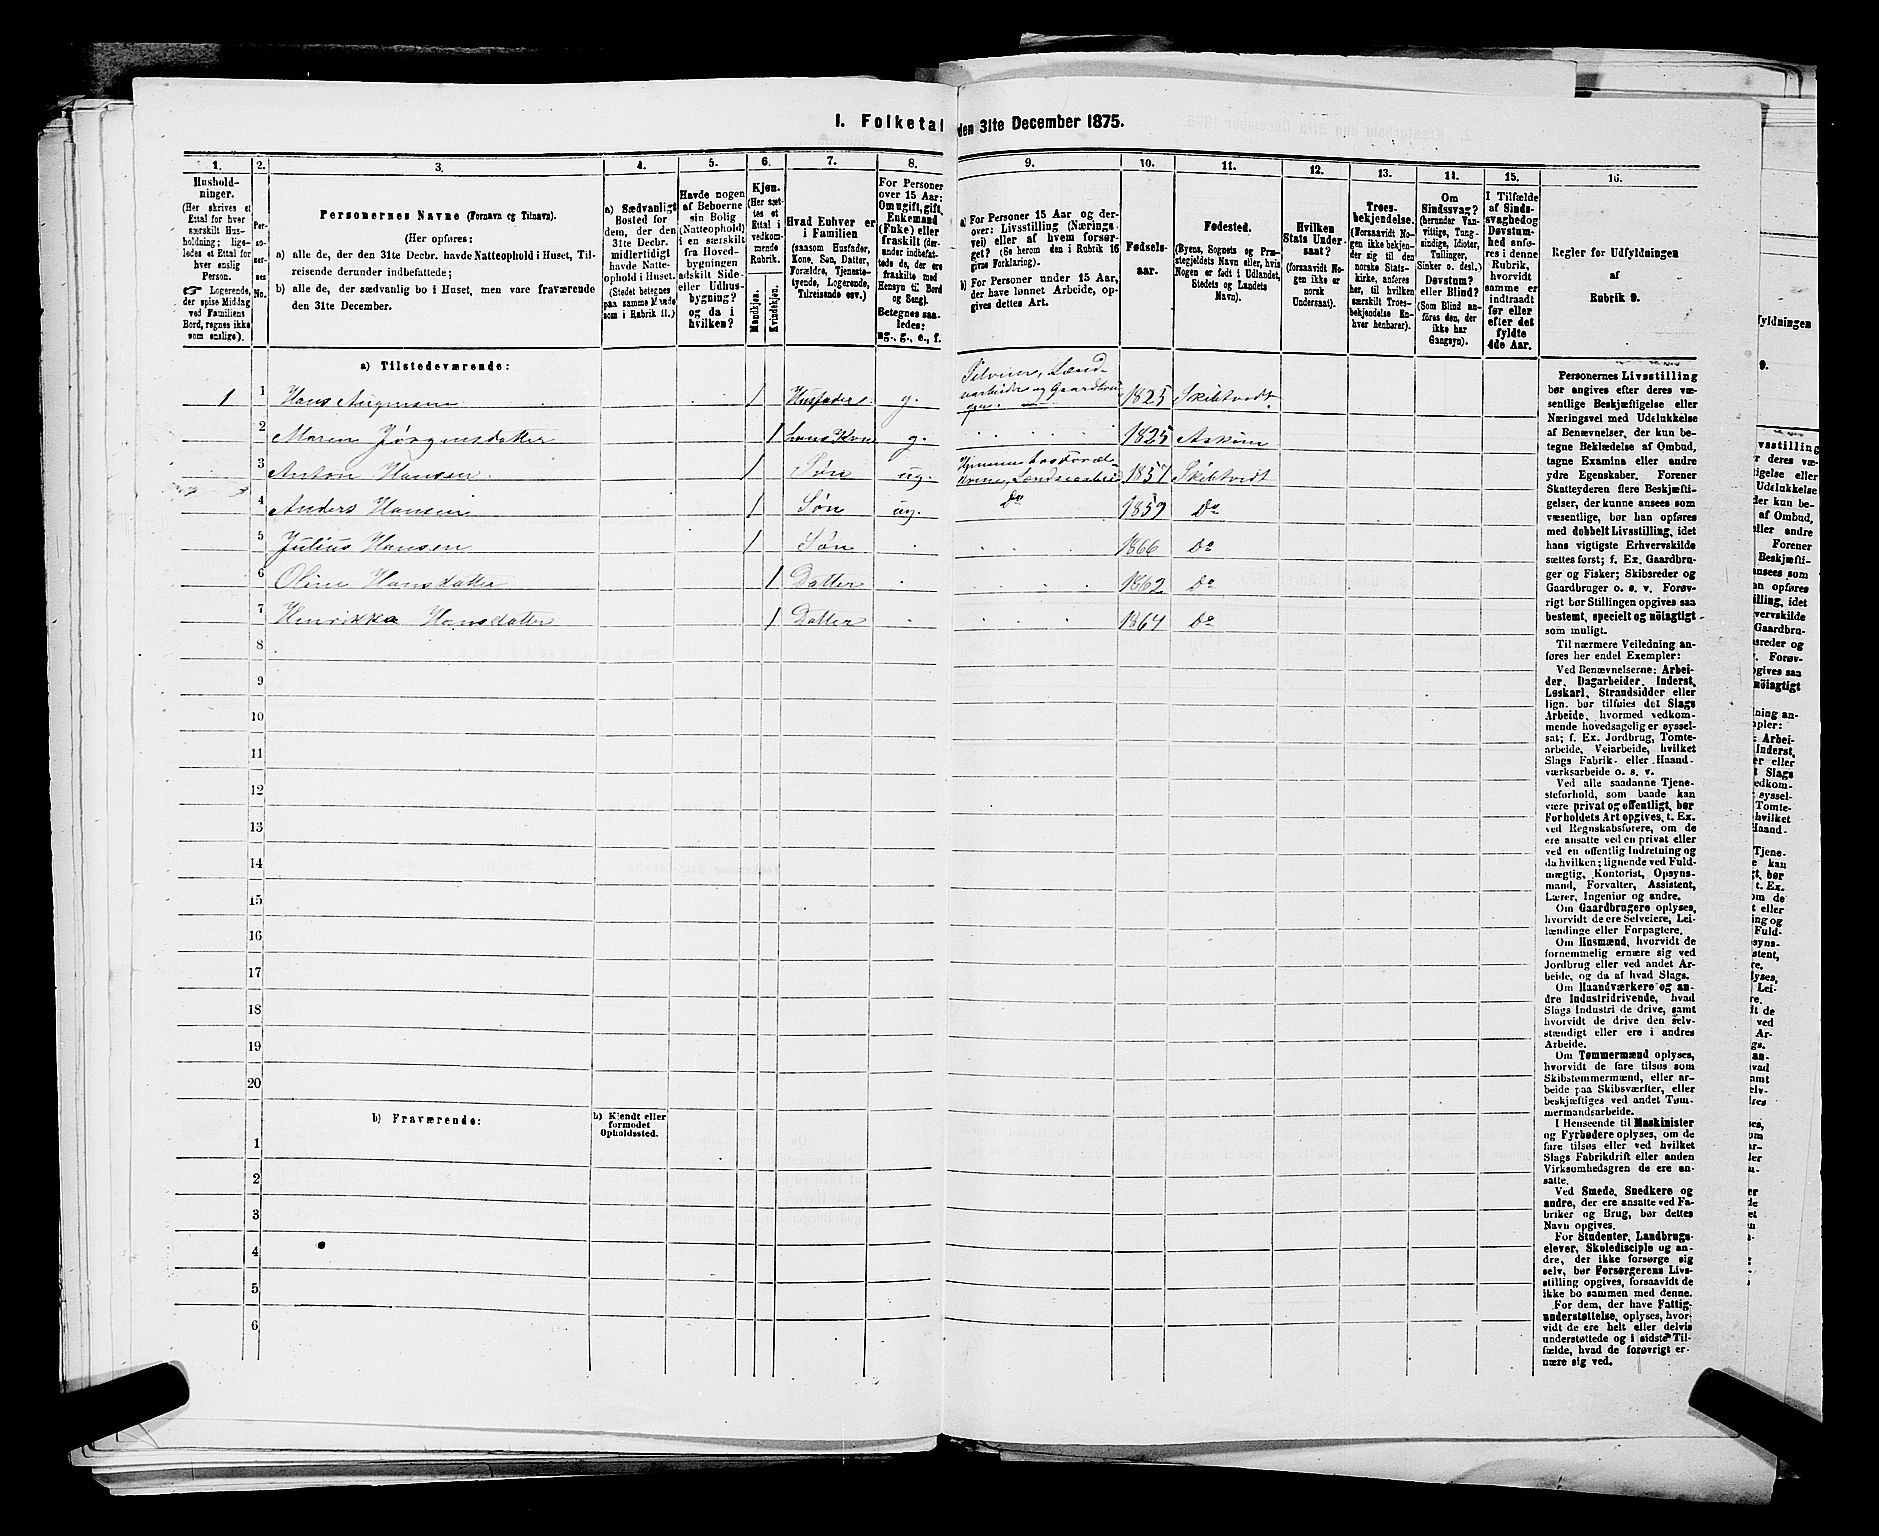 I. Folketal den 31te December 1875.
1. 2. 3. 4. 5. 6. 7. 8. 9. 10. 11. 12. 13. 14. 15. 16.
Hushold-
ninger.
(Her skrives et
Ettal for hver
særskilt Hus-
holdning; lige-
ledes et Ettal for
hver enslig
Person.
Logerende,
der spise Middag
ved Familiens
Bord, regnes ikke
som enslige).
Per-
so-
ner-
nes
No.
Personernes Navne (Fornavn og Tilnavn).
(Her opføres:
a) alle de, der den 31te Decbr. havde Natteophold i Huset, Til-
reisende derunder indbefattede;
b) alle de, der sædvanlig bo i Huset, men vare fraværende
den 31te December.
a) Sædvanligt
Bosted for
dem, der den
31te Decbr.
midlertidigt
havde Natte-
ophold i Huset.
(Stedet betegnes
paa samme Maade
som i Rubrik 11.)
Havde nogen
af Beboerne
sin Bolig
(Natteophold)
i en særskilt
fra Hoved-
bygningen
adskilt Side-
eller Udhus-
bygning?
og da i
hvilken?
Kjøn.
(Her sæt-
tes et
Ettal i
vedkom-
mende
Rubrik.
Mandkjøn.
Kvindekjøn.
Hvad Enhver er
i Familien
(saasom Husfader,
Kone, Søn, Datter,
Forældre, Tjeneste-
tyende, Logerende,
Tilreisende osv.)
For Personer
over 15 Aar:
Om ugift, gift,
Enkemand
(Enke) eller
fraskilt (der-
under indbefat-
tede de, der ere
fraskilte med
Hensyn til Bord
og Seng).
Betegnes saa-
ledes:
ug., g., e., f.
a) For Personer 15 Aar og der-
over: Livsstilling (Nærings-
vei) eller af hvem forsør-
get? (Se herom den i Rubrik 16
givne Forklaring).
b) For Personer under 15 Aar,
der have lønnet Arbeide, op-
gives dettes Art.
Fødsels-
aar.
Fødested.
(Byens, Sognets og Præ-
stegjeldets Navn eller, hvis
Nogen er født i Udlandet,
Stedets og Landets
Navn).
Hvilken
Stats Under-
saat?
(forsaavidt No-
gen ikke er
norsk
Undersaat).
Troes-
bekjendelse.
(Forsaavidt No-
gen ikke bekjen-
der sig til den
norske Stats-
kirke, anføres
her, til hvilken
særskilt Troes-
bekjendelse En-
hver henhører).
Om
Sindssvag?
(herunder Van-
vittige, Tung-
sindige, Idioter,
Tullinger,
Sinker o. desl.)
Døvstum?
eller Blind?
(Som Blind an-
føres den, der
ikke har
Gangsyn).
I Tilfælde
af Sinds-
svaghed og
Døvstum-
hed anfø-
res i denne
Rubrik,
hvorvidt
samme er
indtraadt
før eller
efter det
fyldte
4de Aar.
Regler for Udfyldningen
af
Rubrik 9.
a) Tilstedeværende:
1 1 Hans 1 Husfader g. 1825 Skibtvedt
2 Maren Jørgensdatter 1 hans Kone g. 1825 Askim
3 Anton Hansen 1 Søn ug. 1857 Skibtvedt
4 Anders Hansen 1 Søn ug. Do 1859 Do
5 Julius Hansen 1 Søn 1866 Do
6 Oline Hansdatter 1 Datter 1862 Do
7 Henrikka Hansdatter 1 Datter 1864 Do
8
9
10
11
12
13
14
15
16
17
18
19
20
b) Fraværende:
b) Kjendt eller
formodet
Opholdssted.
1
2
3
4
5
6
Personernes Livsstilling
bør angives efter deres væ-
sentlige Beskjæftigelse eller
Næringsvei med Udelukkelse
af Benævnelser, der kun be-
tegne Beklædelse af Ombud,
tagne Examina eller andre
ydre Egenskaber. Forener
Skatteyderen flere Beskjæfti-
gelser, der kunne ansees som
væsentlige, bør han opføres
med dobbelt Livsstilling, idet
hans vigtigste Erhvervskilde
sættes først; f. Ex. Gaardbru-
ger og Fisker; Skibsreder og
Gaardbruger o. s. v. Forøv-
rigt bør Stillingen opgives saa
bestemt, specielt og nöiagtigt
som muligt.
Til nærmere Veiledning an-
føres her endel Exempler:
Ved Benævnelserne: Arbei-
der, Dagarbeider, Inderst,
Løskarl, Strandsidder eller
lign. bør tilføies det Slags
Arbeide, hvormed vedkom-
mende hovedsagelig er syssel-
sat; f. Ex. Jordbrug, Tomte-
arbeide, Veiarbeide, hvilket
Slags Fabrik- eller Haand-
værksarbeide o. s. v.
Ved alle saadanne Tjene-
steforhold, som baade kan
være privat og offentligt, bør
Forholdets Art opgives, t. Ex.
ved Regnskabsførere, om de
ere ansatte ved en privat eller
ved en offentlig Indretning og
da hvilken; lignende ved Fuld-
mægtig, Kontorist, Opsyns-
mand, Forvalter, Assistent,
Lærer, Ingeniør og andre.
Om Gaardbrugere oplyses,
hvorvidt de ere Selveiere, Lei-
lændinge eller Forpagtere.
Om Husmænd, hvorvidt de
fornemmelig ernære sig ved
Jordbrug eller ved andet Ar-
beide, og da af hvad Slags.
Om Haandværkere og an-
dre Industridrivende, hvad
Slags Industri de drive, samt
hvorvidt de drive den selv-
stændigt eller ere i andres
Arbeide.
Om Tømmermænd oplyses,
hvorvidt de fare tilsøs som
Skibstømmermænd, eller ar-
beide paa Skibsværfter, eller
beskjæftiges ved andet Tøm-
mermandsarbeide.
I Henseende til Maskinister
og Fyrbødere oplyses, om de
fare tilsøs eller ved hvilket
Slags Fabrikdrift eller anden
Virksomhedsgren de ere an-
satte.
Ved Smede, Snedkere og
andre, der ere ansatte ved Fa-
briker og Brug, bør dettes
Navn opgives.
For Studenter, Landbrugs-
elever, Skoledisciple og an-
dre, der ikke forsørge sig
selv, bør Forsørgerens Livs-
stilling opgives, forsaavidt de
ikke bo sammen med denne.
For dem, der have Fattig-
understøttelse, oplyses, hvor-
vidt de ere helt eller delvis
understøttede og i sidste Til-
fælde, hvad de forøvrigt er-
nære sig ved.